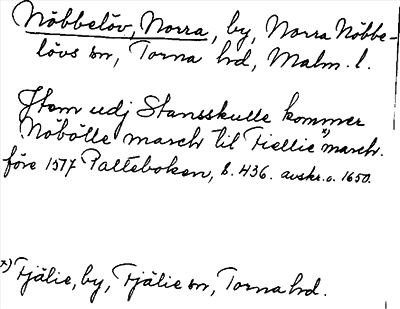 Nöbbelöv, Norra, by, Norra Nöbbe-
lövs sn, Torna hd, Malm. l.
Jtem udj Stansskulle kommer
Nöbölle march til Fiellie x) march.
före 1577 Palteboken, s. 436. avskr. o. 1650.
x) Fjälie, by, Fjälie sn, Torna hd.